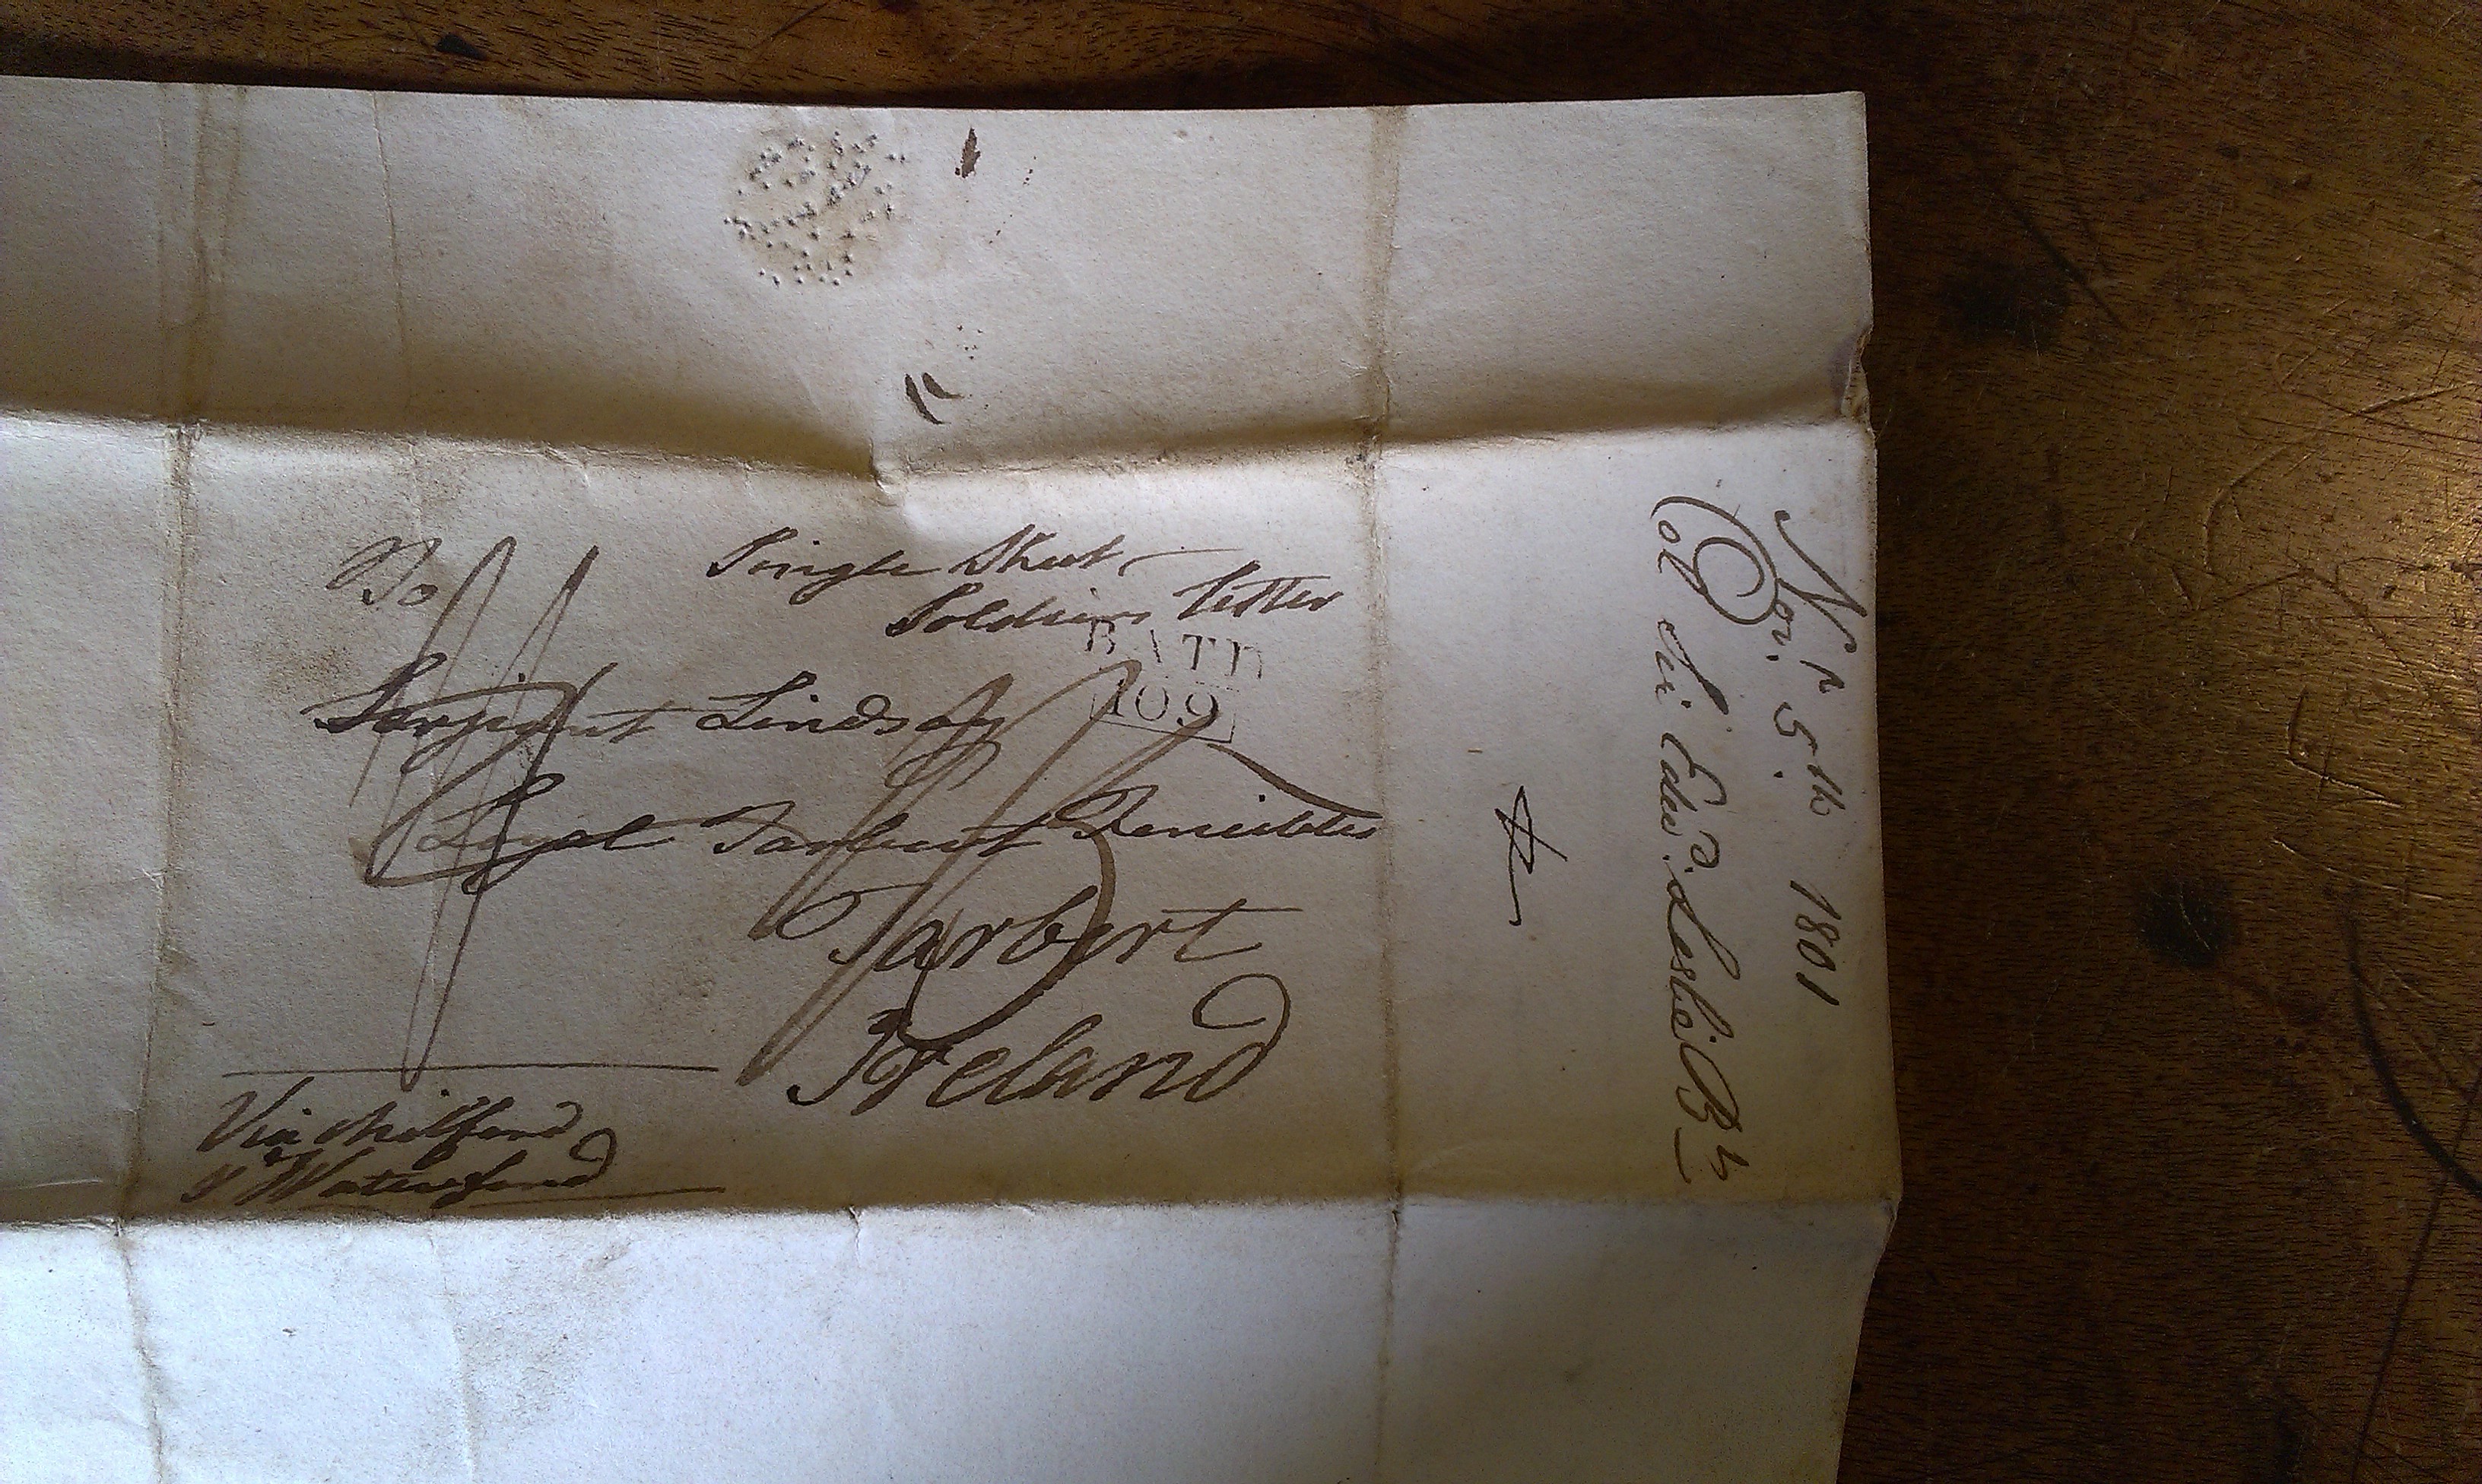 Single Sheet
Soldiers letter
To
BATH
109
Serjeint Lindsay
Loyal Tarbert Fencibles
Tarbert
Ireland
Via Milford
& Waterford
Novr. 5th. 1801
Col Sir Edwd. Leslie Bt